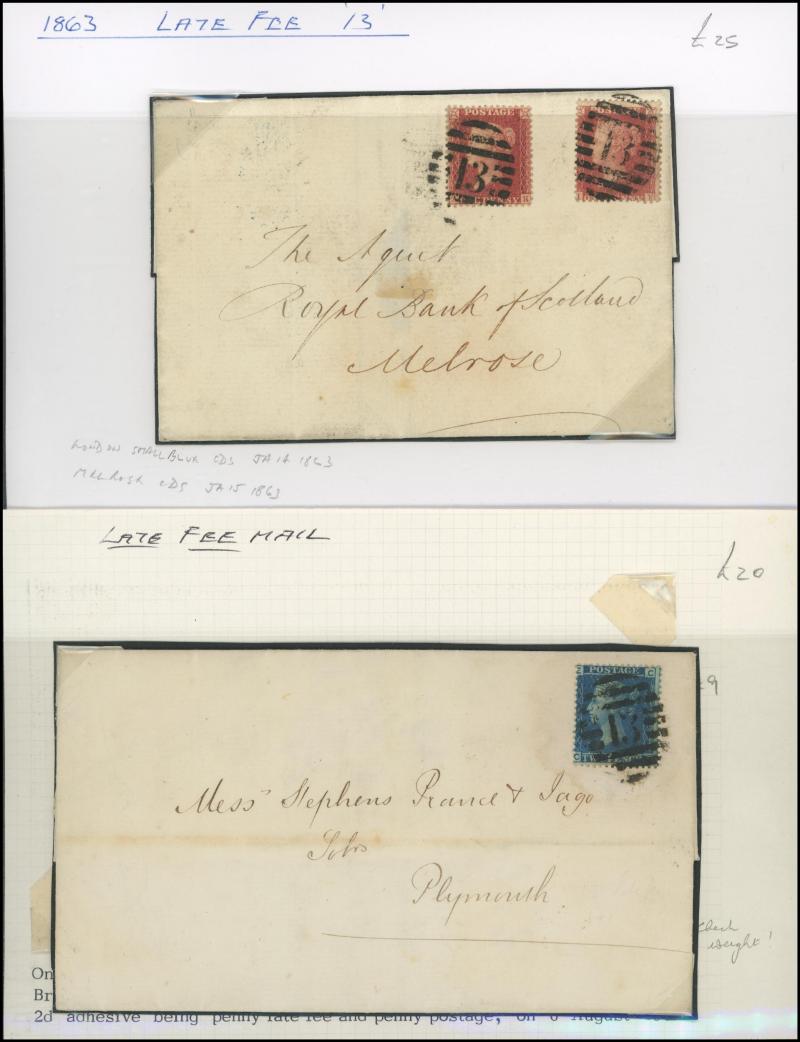 1863 LATE FEE '13'
£25
POSTAGE
13
13
The Agent
Royal Bank of Scotland
Melrose
LONDON SMALL BLUE CDS JA 14 1863
MELROSE CDS JA 15 1863
LATE FEE MAIL
£20
9
POSTAGE
13
Messrs Stephens Prance & Iago
Solrs
Plymouth
Check
weight!
On
Br
2d adhesive being penny late fee and penny postage, on 6 August